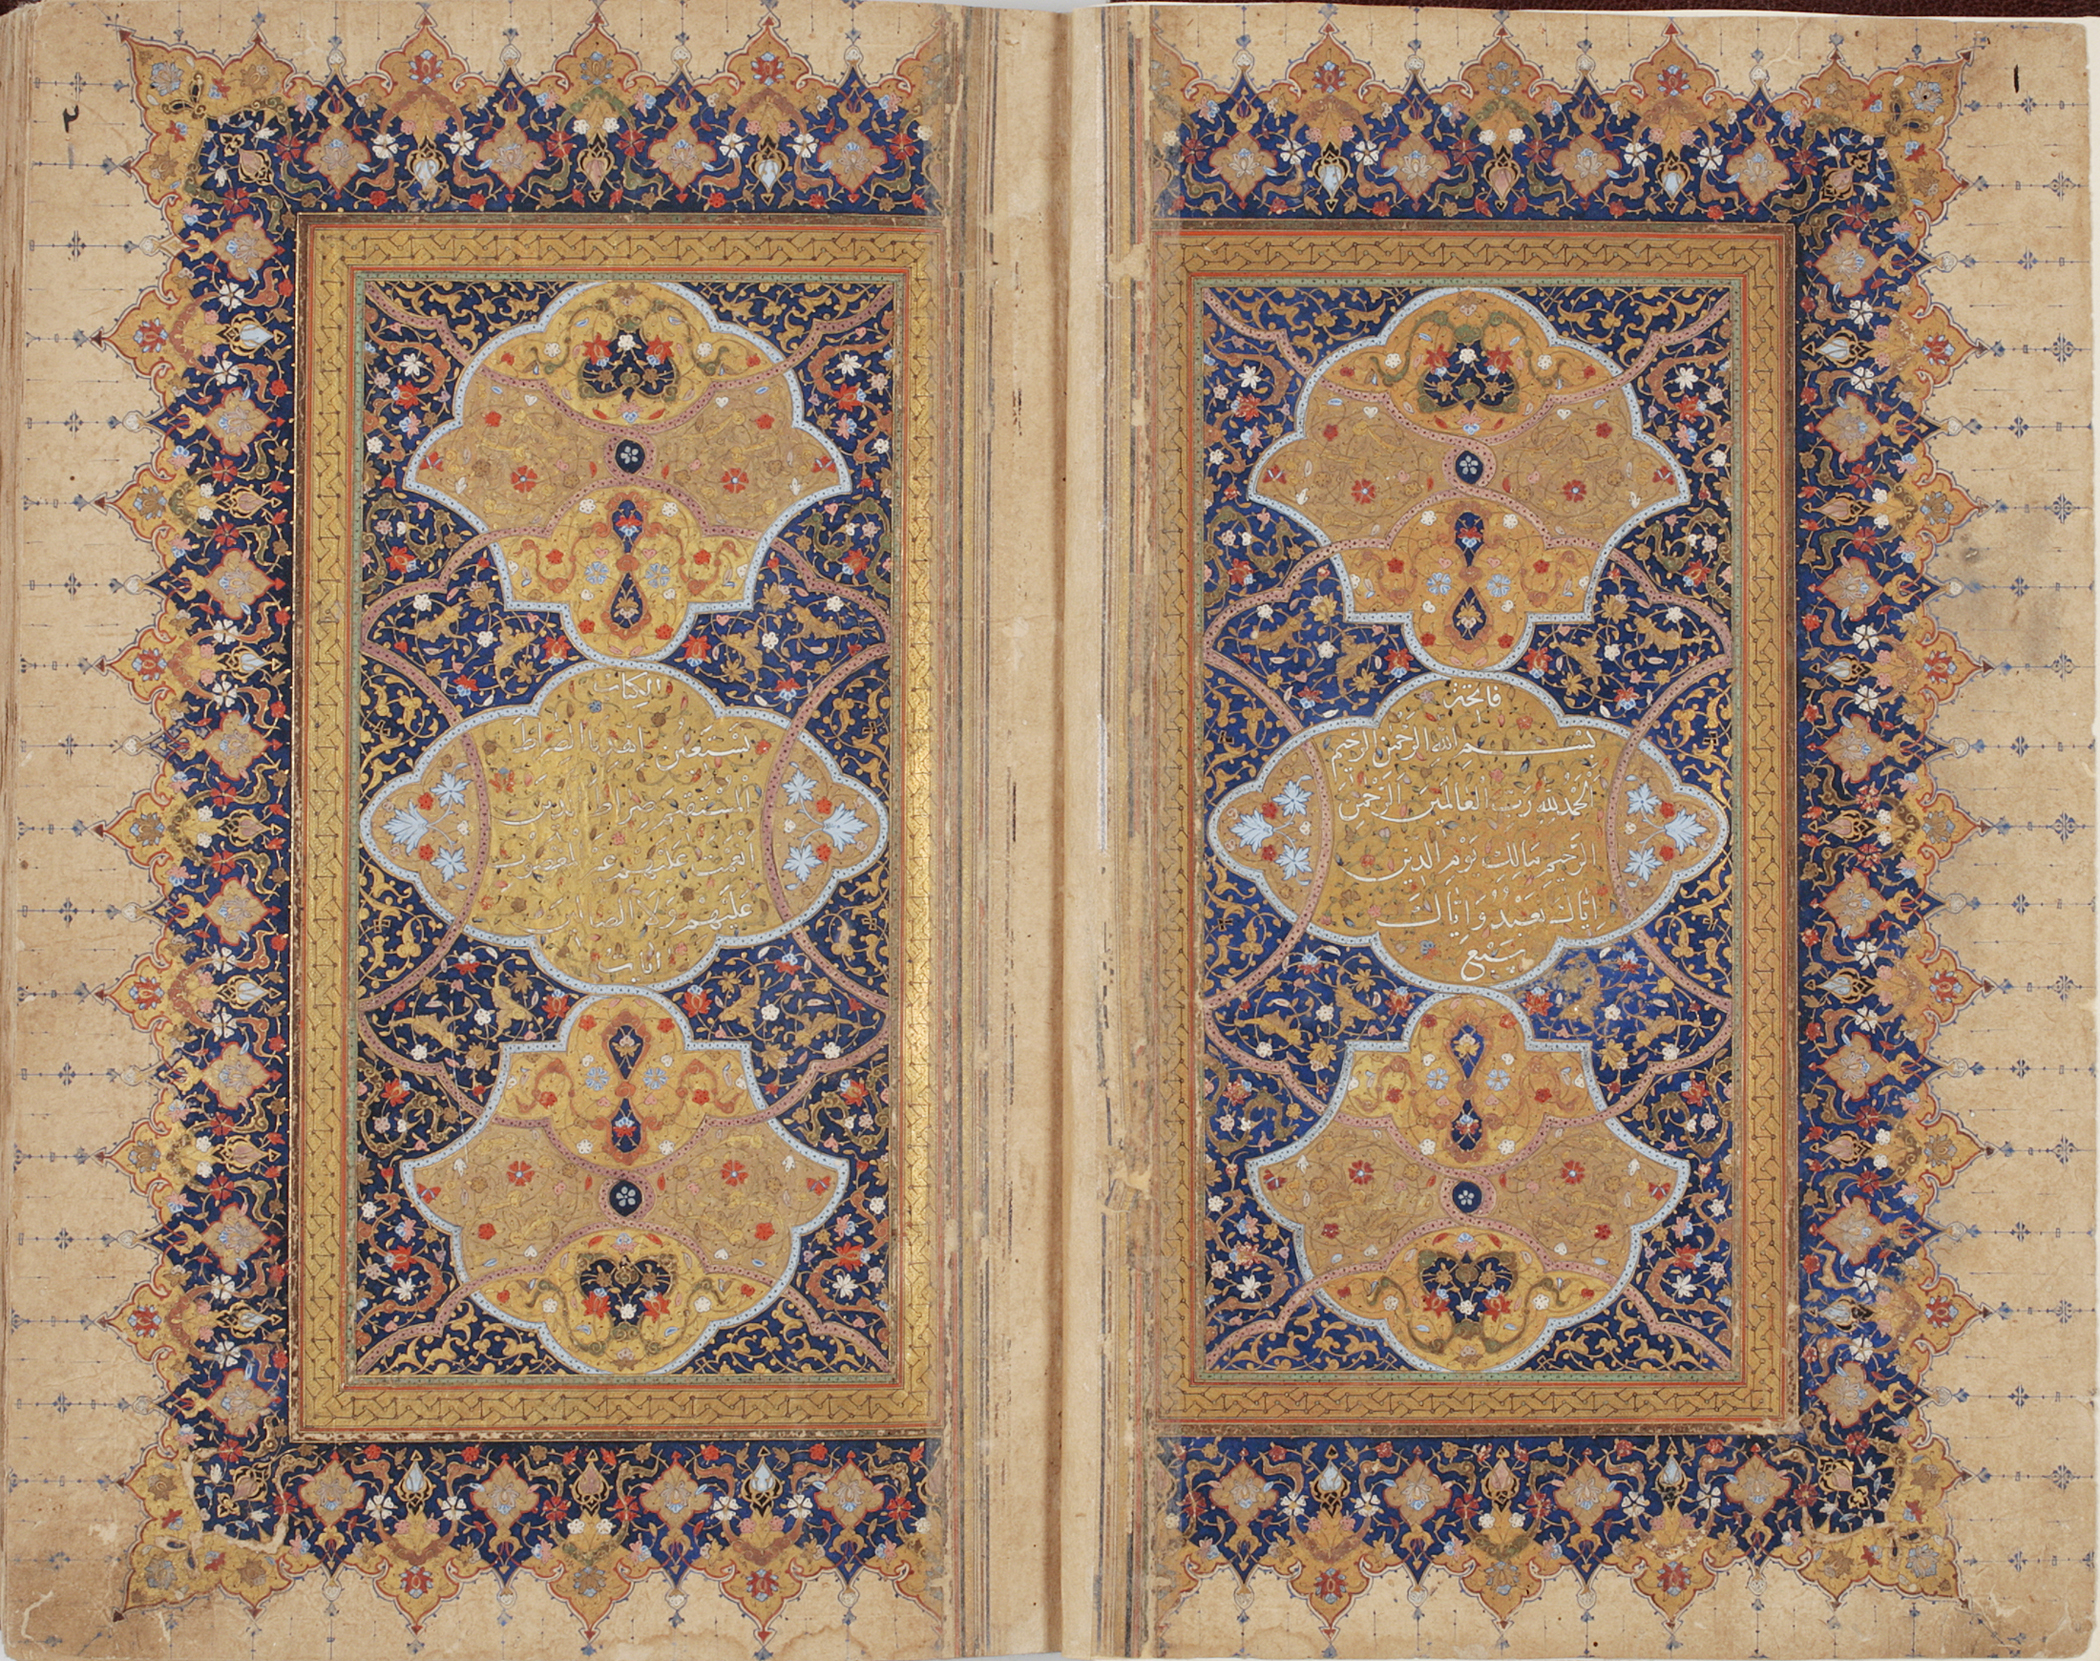 ١
فاتحة
بسم الله الرحمن الرحيم
الحمد لله رب العالمين الرحمن
الرحيم مالك يوم الدين
اياك نعبد واياك
سبع
٢
الكتاب
نستعين اهدنا الصراط
المستقيم صراط الذين
انعمت عليهم غير المغضوب
عليهم ولا الضالين
ايات